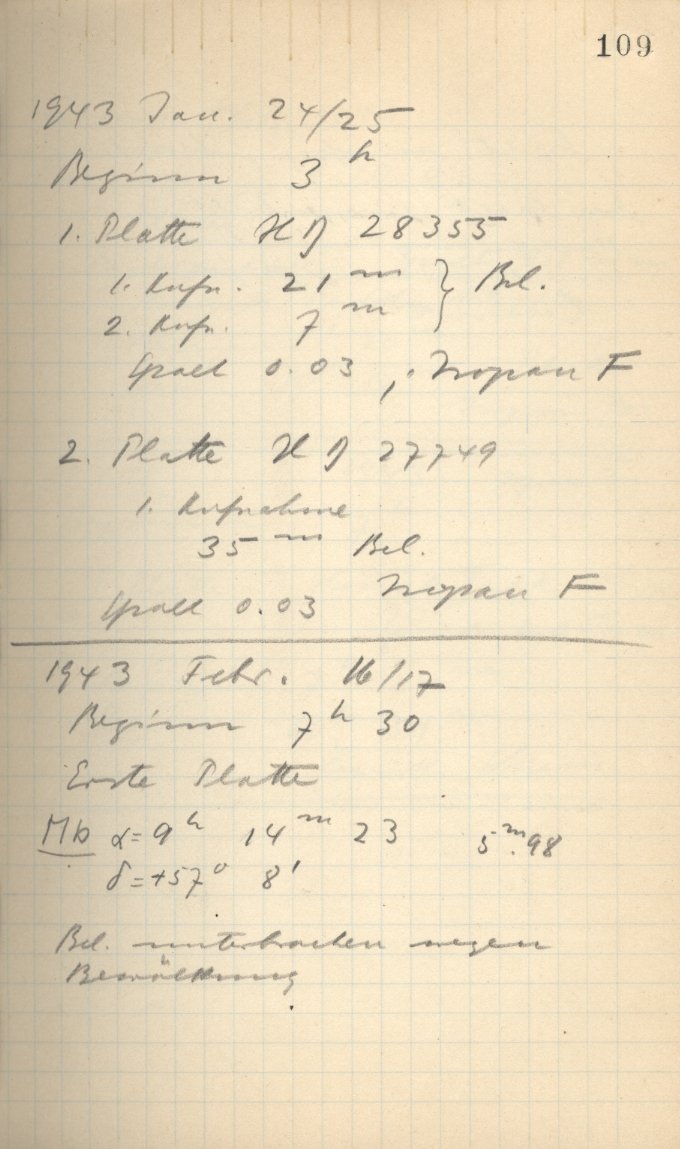 109
1943 Jan. 24/25
Beginn 3 h
1. Platte HD 28355
1. Aufn. 21 m } Bel.
2. Aufn. 7 m
Spalt 0.03, Isopan F
2. Platte HD 27749
1. Aufnahme
35 m Bel.
Isopan F
Spalt 0.03
1943 Febr. 16/17
Beginn 7 h 30
Erste Platte
Mb α = 9 h 14 m 23 5 m.98
δ = +57° 8'
Bel. unterbrochen wegen
Bewölkung.